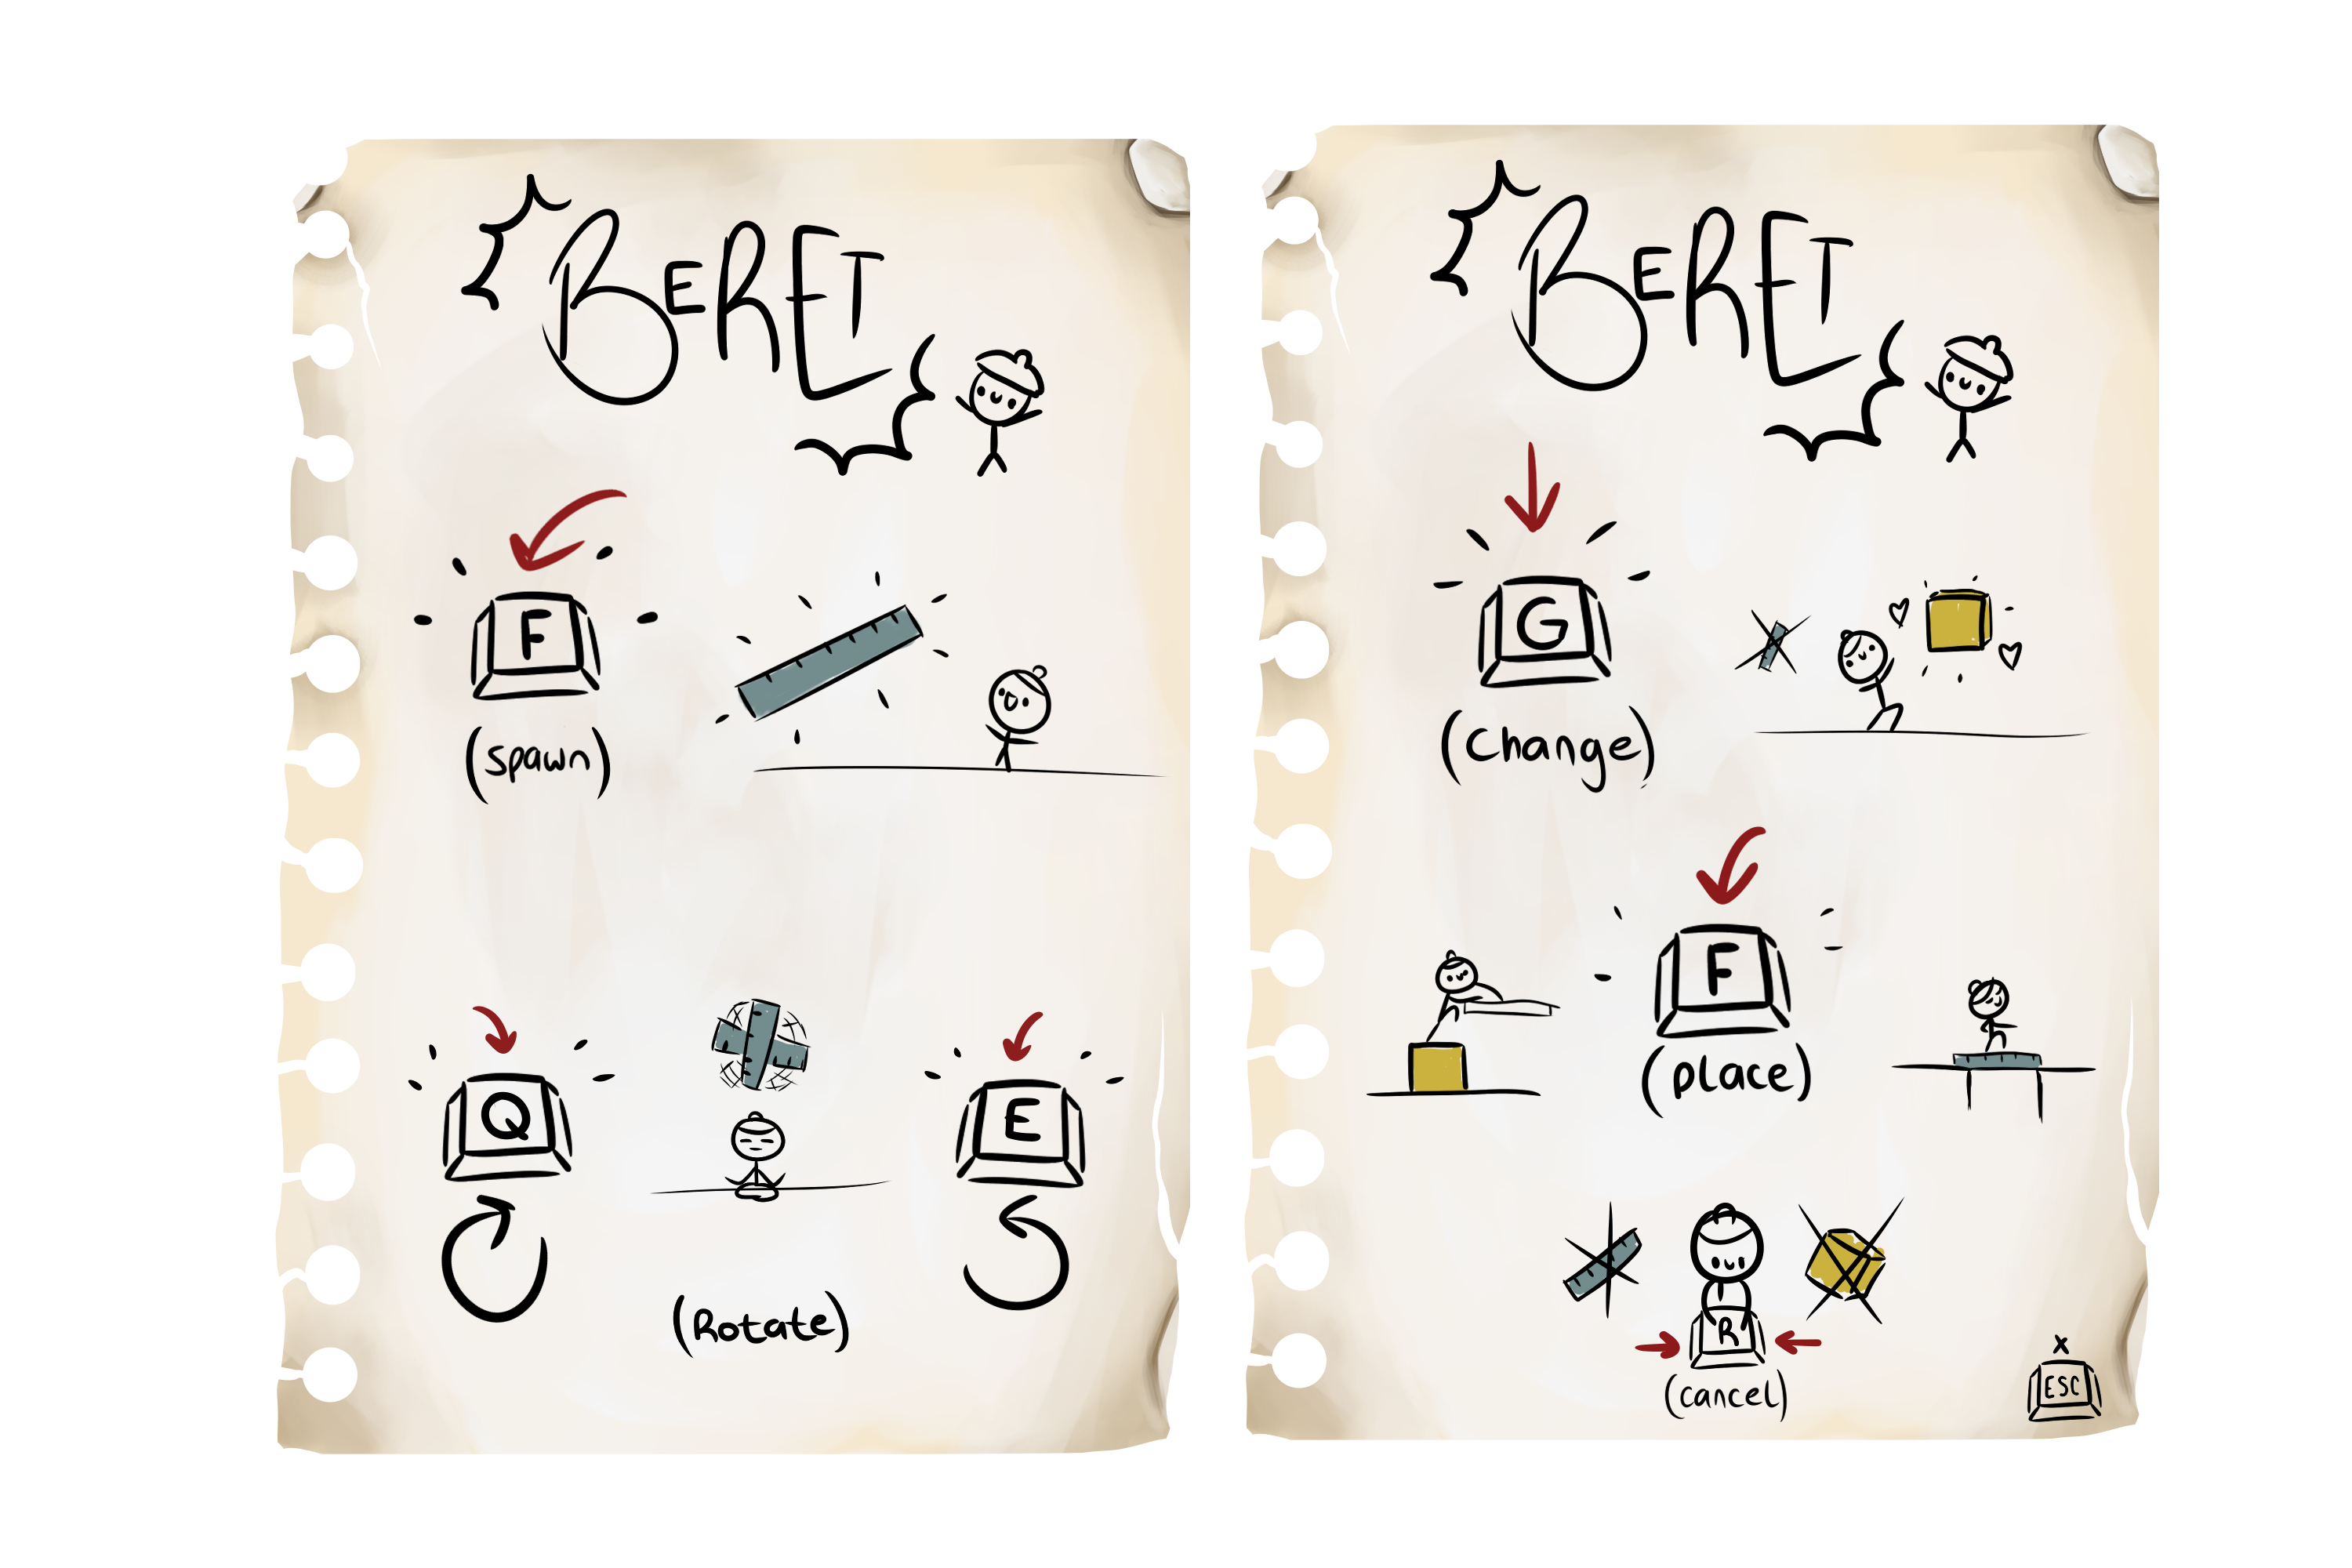 BERET
F
(spawn)
Q
E
(Rotate)
BERET
G
(change)
F
(place)
R
(cancel)
x
ESC